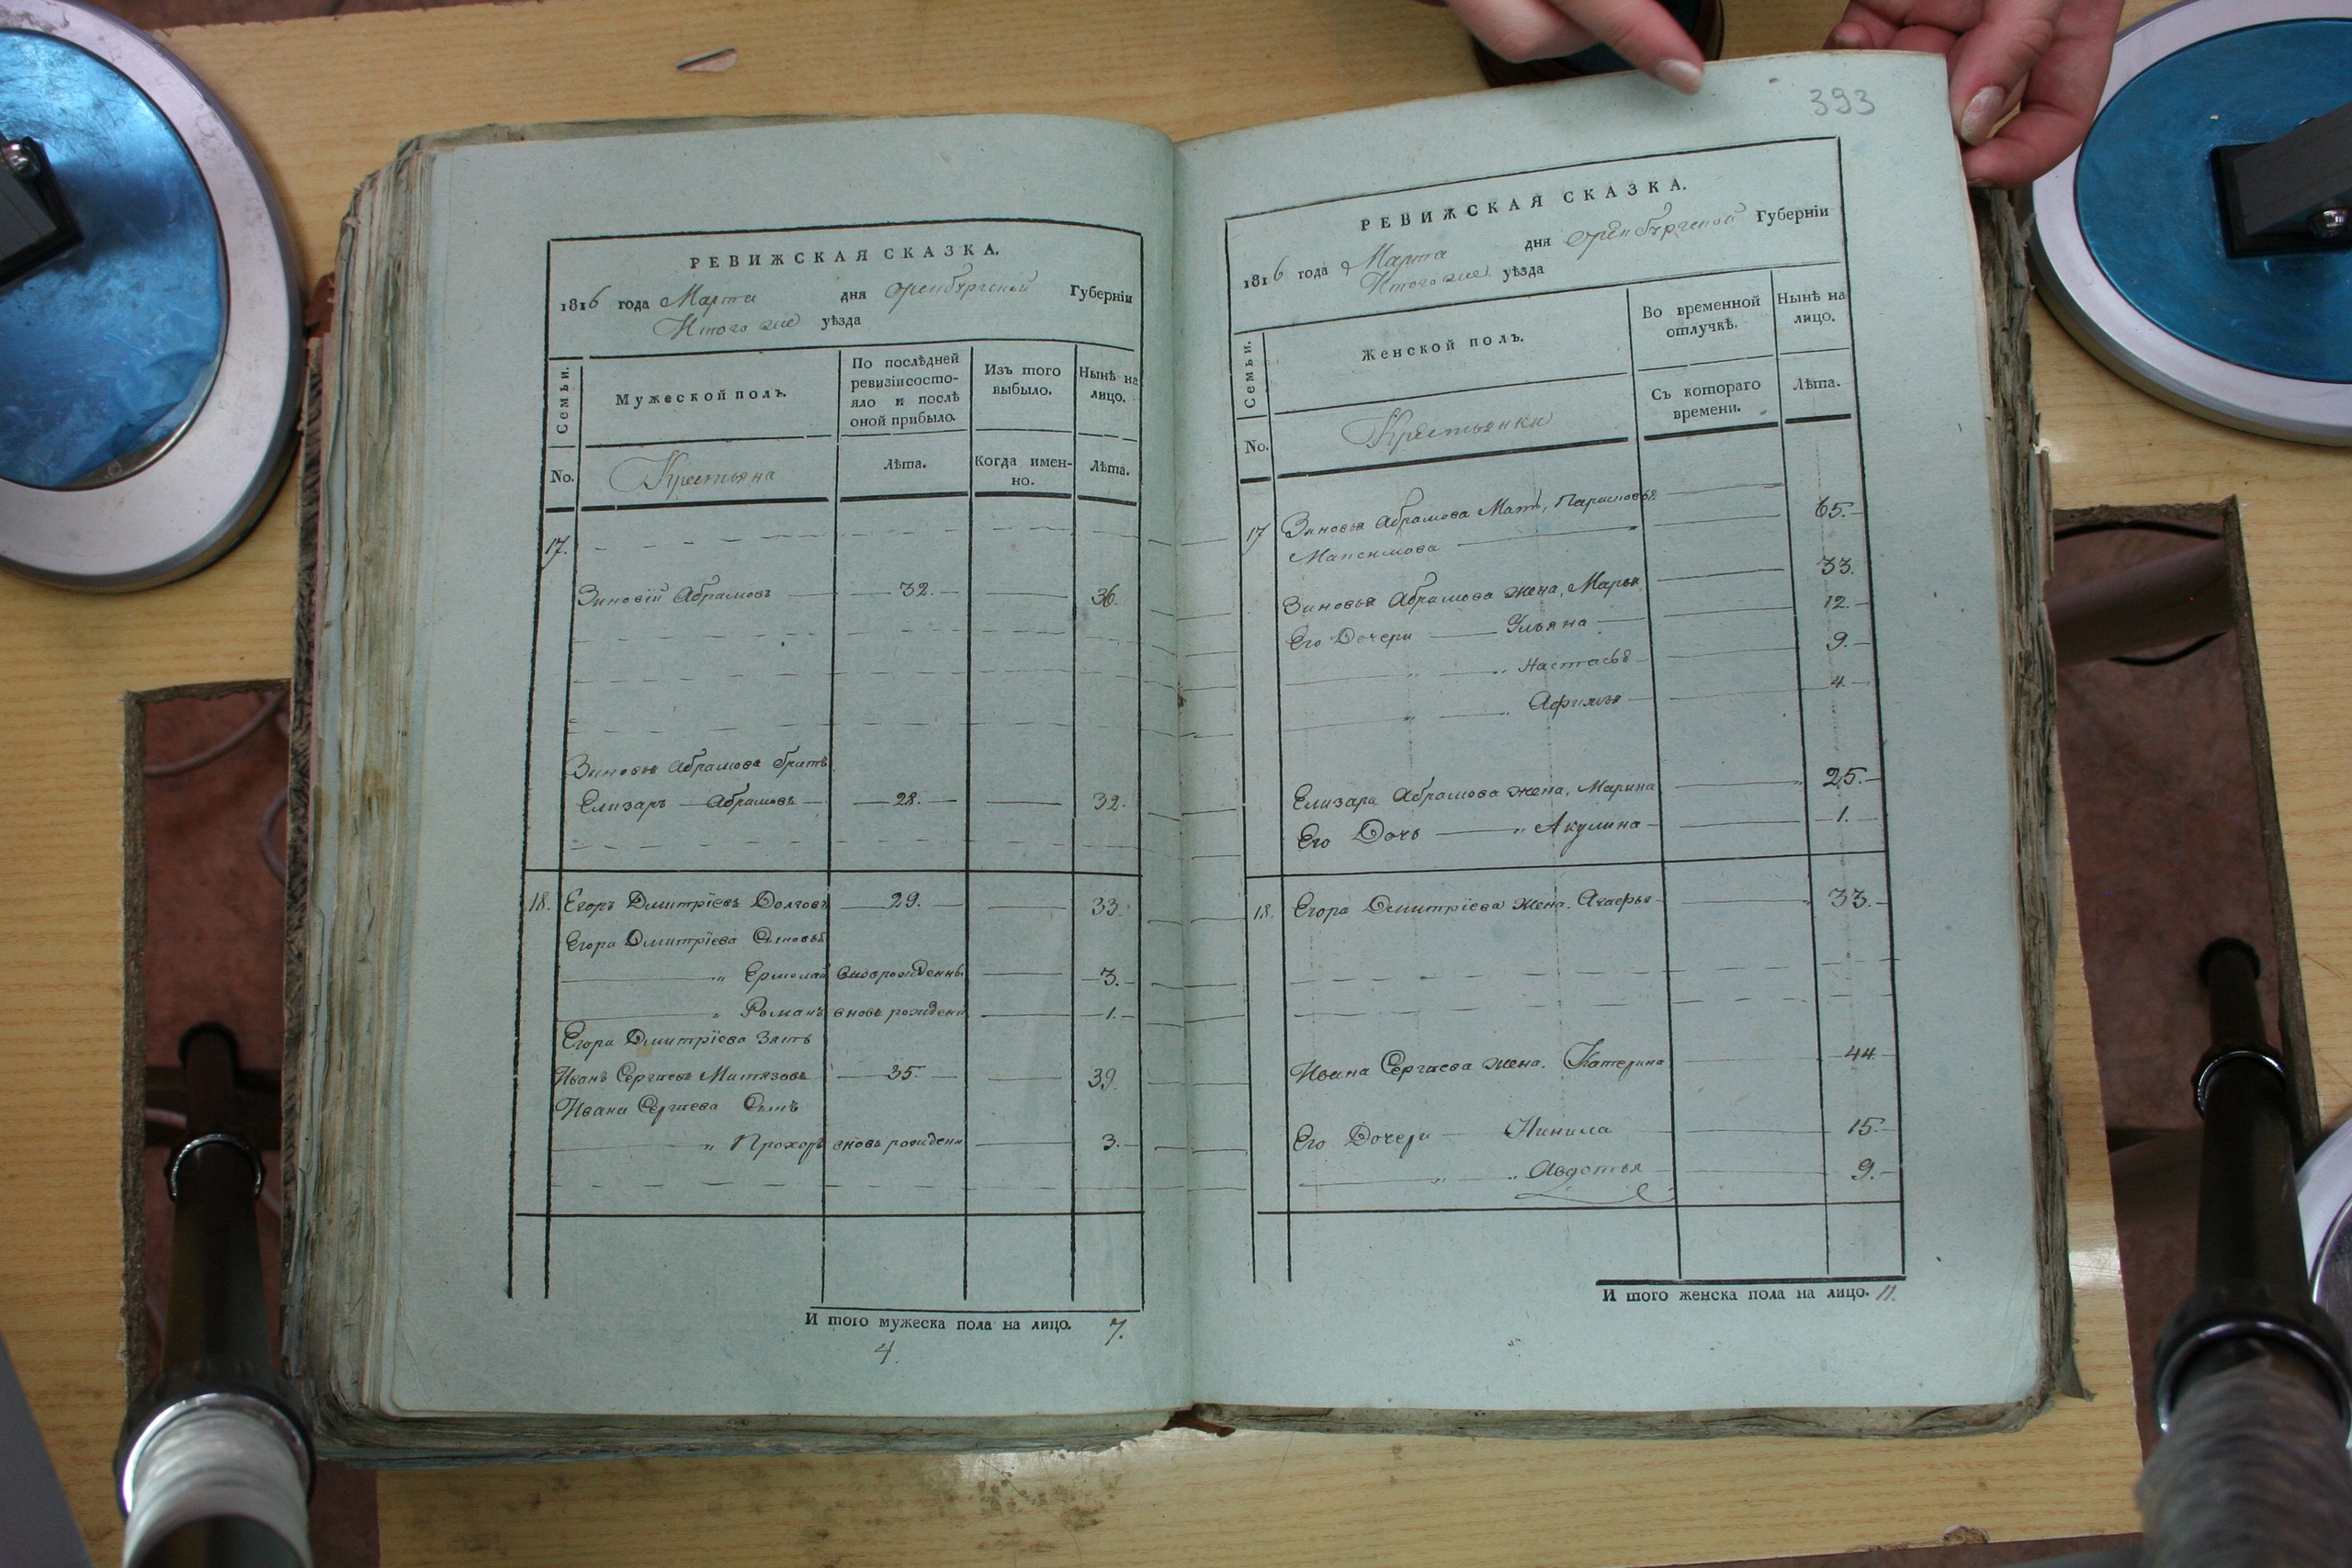 РЕВИЖСКАЯ СКАЗКА.
1816 года Марта дня Оренбургской Губернїи
Ктого же уѣзда
Семьи.
Мужеской полъ.
По послѣдней ревизїи состо-
яло и послѣ
оной прибыло.
Изъ того
выбыло.
Нынѣ на
лицо.
No.
Крестьяна
Лѣта.
Когда имен-
но.
Лѣта.
17.
Зиновїй Абрамовъ 32. 36.
Зиновья Абрамова братъ
Елизаръ Абрамовъ 28. 32.
18. Егоръ Дмитрїевъ Долговъ 29. 33.
Егора Дмитрїева Сыновья
" Ермолай вновьрожденны 3.
" Романъ вновь рожденн 1.
Егора Дмитрїева Зять
Иванъ Сергѣевъ 35. 39.
Ивана Сергѣева Сынъ
" Прохоръ вновь рожденн 3.
И того мужеска пола на лицо. 7.
4.
393
РЕВИЖСКАЯ СКАЗКА.
1816 года Марта дня Оренбургской Губернїи
Ктого же уѣзда
Семьи.
Женской полъ.
Во временной
отлучкѣ.
Нынѣ на
лицо.
No.
Крестьянки
Съ котораго
времени.
Лѣта.
17 Зиновья Абрамова Мать, Парасковья 65.
Максимова
Зиновья Абрамова жена, Марья 33.
Его Дочери Ульяна 12.
" " Настасья 9.
" " Афимья 4.
Елизара Абрамова жена, Марина 25.
Его Дочь " Акулина 1.
18. Егора Дмитрїева жена. Агафья 33.
Ивана Сергѣева жена. Катерина 44.
Его Дочери Ненила 15.
" " Авдотья 9.
И того женска пола на лицо. 11.